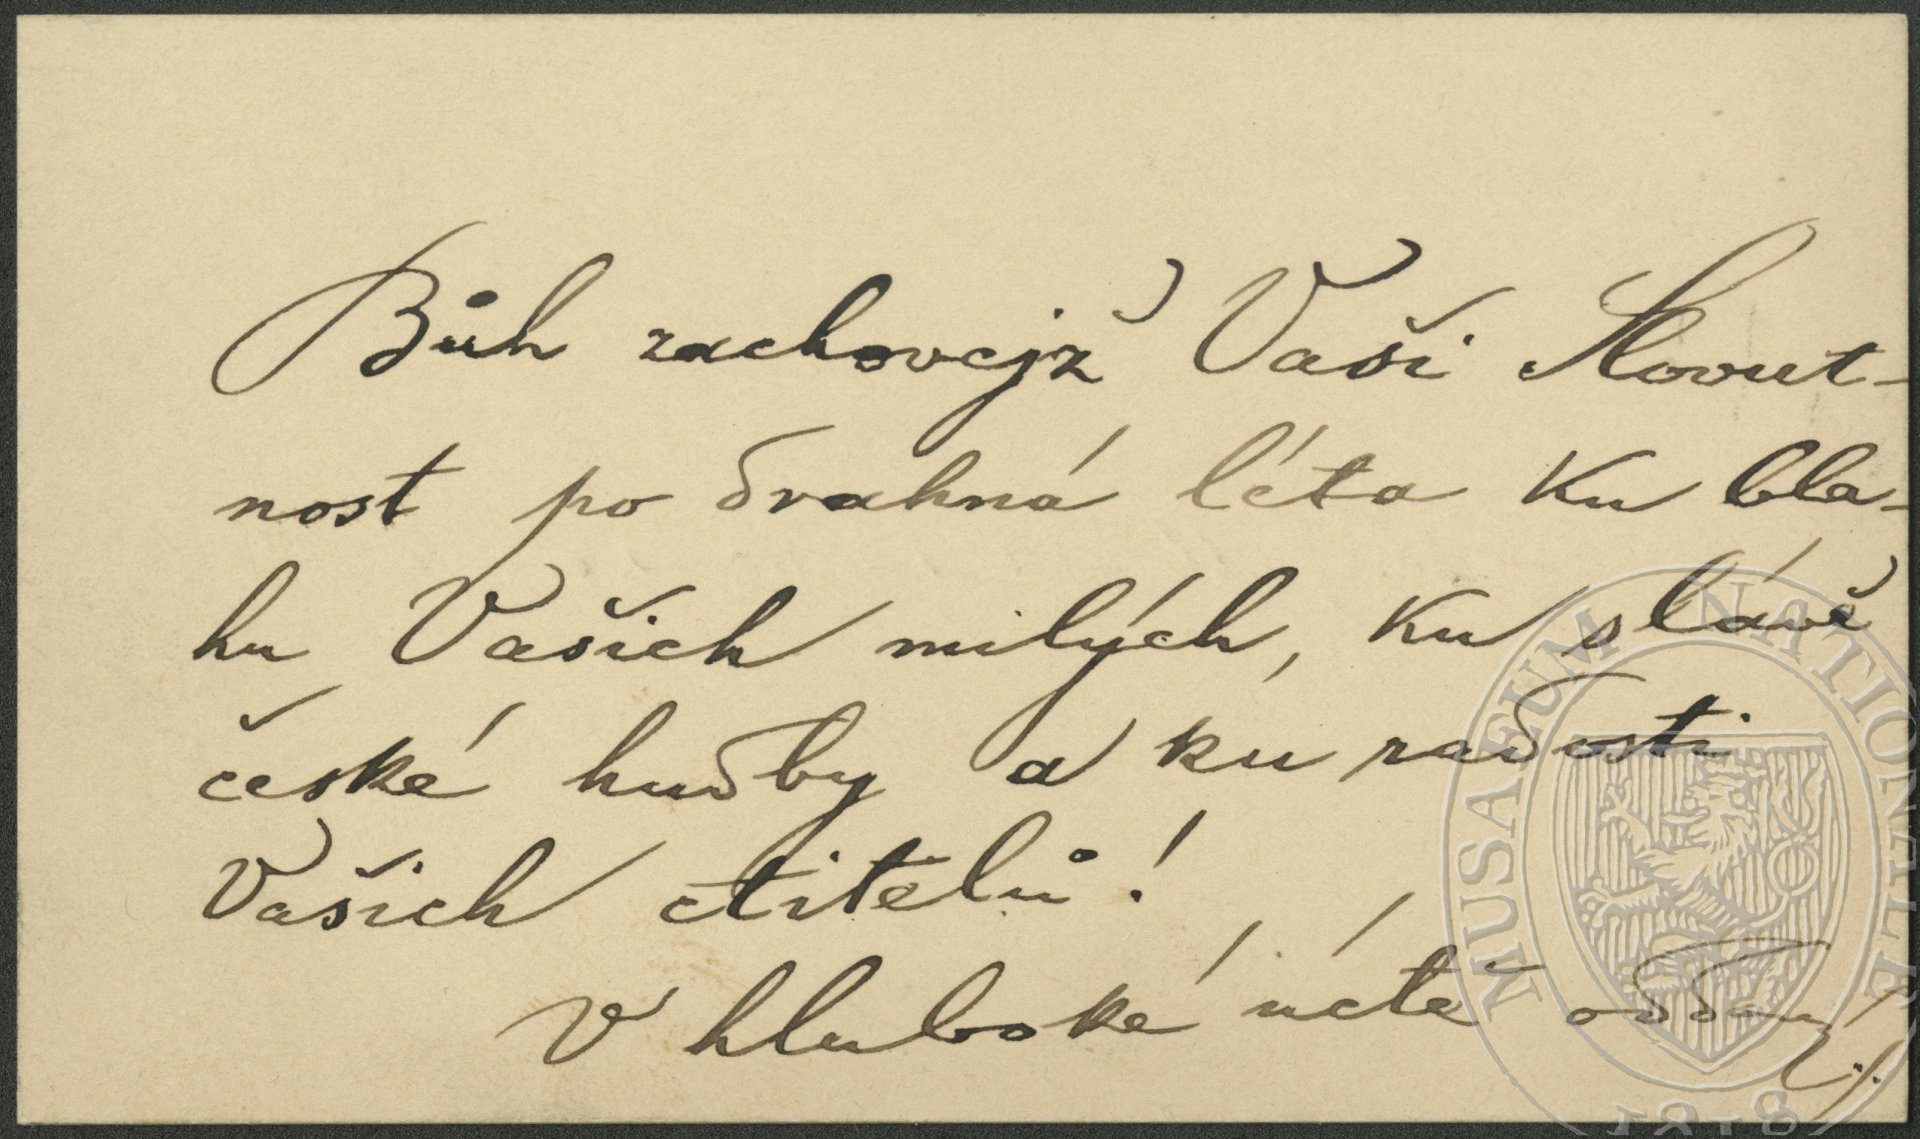 Bůh zachovejž Vaši Slovut-
nost po drahná léta ku bla-
hu Vašich milých, ku slávě
české hudby a ku radosti
Vašich ctitelů!
V hluboké úctě oddaný
MUSAEUM NATIONALE
1818